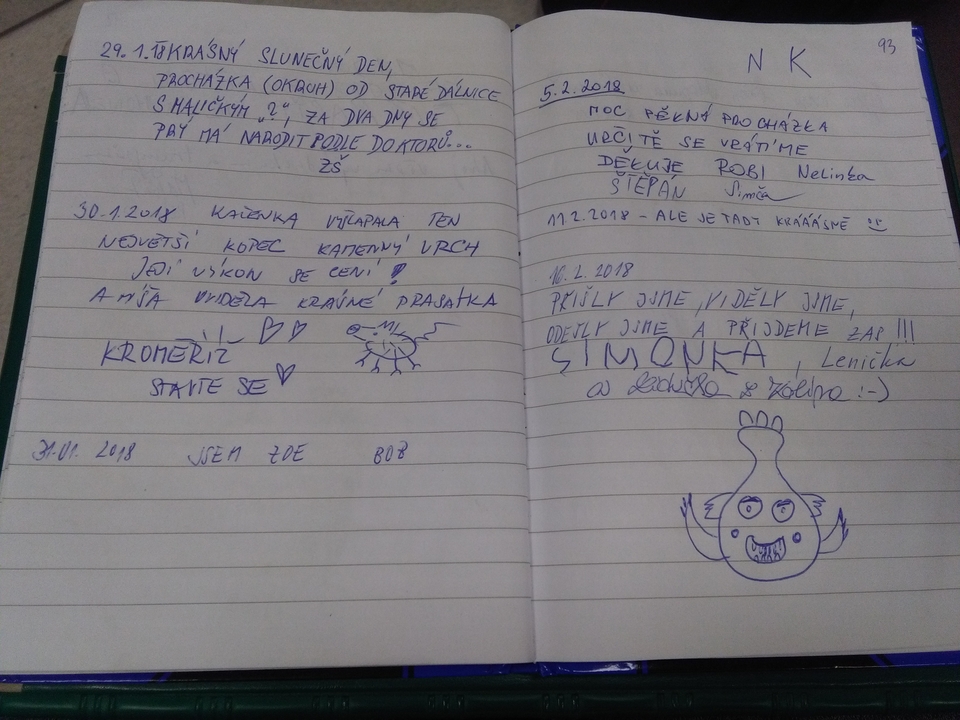 29.1.18 KRÁSNÝ SLUNEČNÝ DEN,
PROCHÁZKA (OKRUH) OD STARÉ DÁLNICE
S MALIČKÝM „2“, ZA DVA DNY SE
PRÝ MÁ NARODIT PODLE DOKTORŮ...
ZŠ
30.1.2018 KAČENKA VYŠLAPALA TEN
NEJVĚTŠÍ KOPEC KAMENNÝ VRCH
JEJÍ VÝKON SE CENÍ!
A MÍŠA VIDĚLA KRÁSNÉ PRASÁTKA
KROMĚŘÍŽ
STAVTE SE
31.01. 2018 JSEM ZDE
93
N K
5.2.2018
MOC PĚKNÁ PROCHÁZKA
URČITĚ SE VRÁTÍME
DĚKUJE ROBI Nelinka
ŠTĚPÁN Simča
11.2.2018 - ALE JE TADY KRÁÁÁSNĚ
10.2.2018
PŘIŠLY JSME, VIDĚLY JSME,
ODEŠLY JSME A PŘIJDEME ZAS!!!
SIMONKA, Lenička
a z :-)